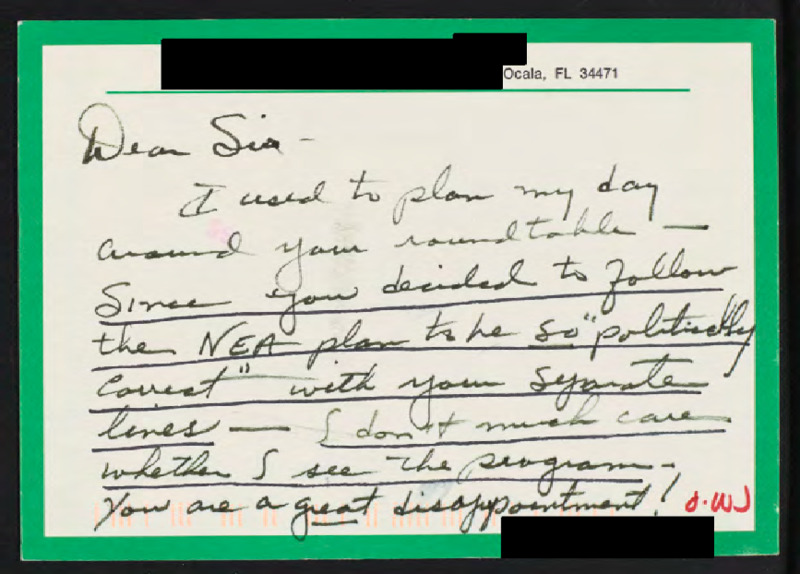 Ocala, FL 34471
Dear Sir -
I used to plan my day
around your roundtable —
Since you decided to follow
the NEA plan to be so "politically
Correct" with your separate
lines — I don't much care
whether I see the program.
You are a great disappointment!